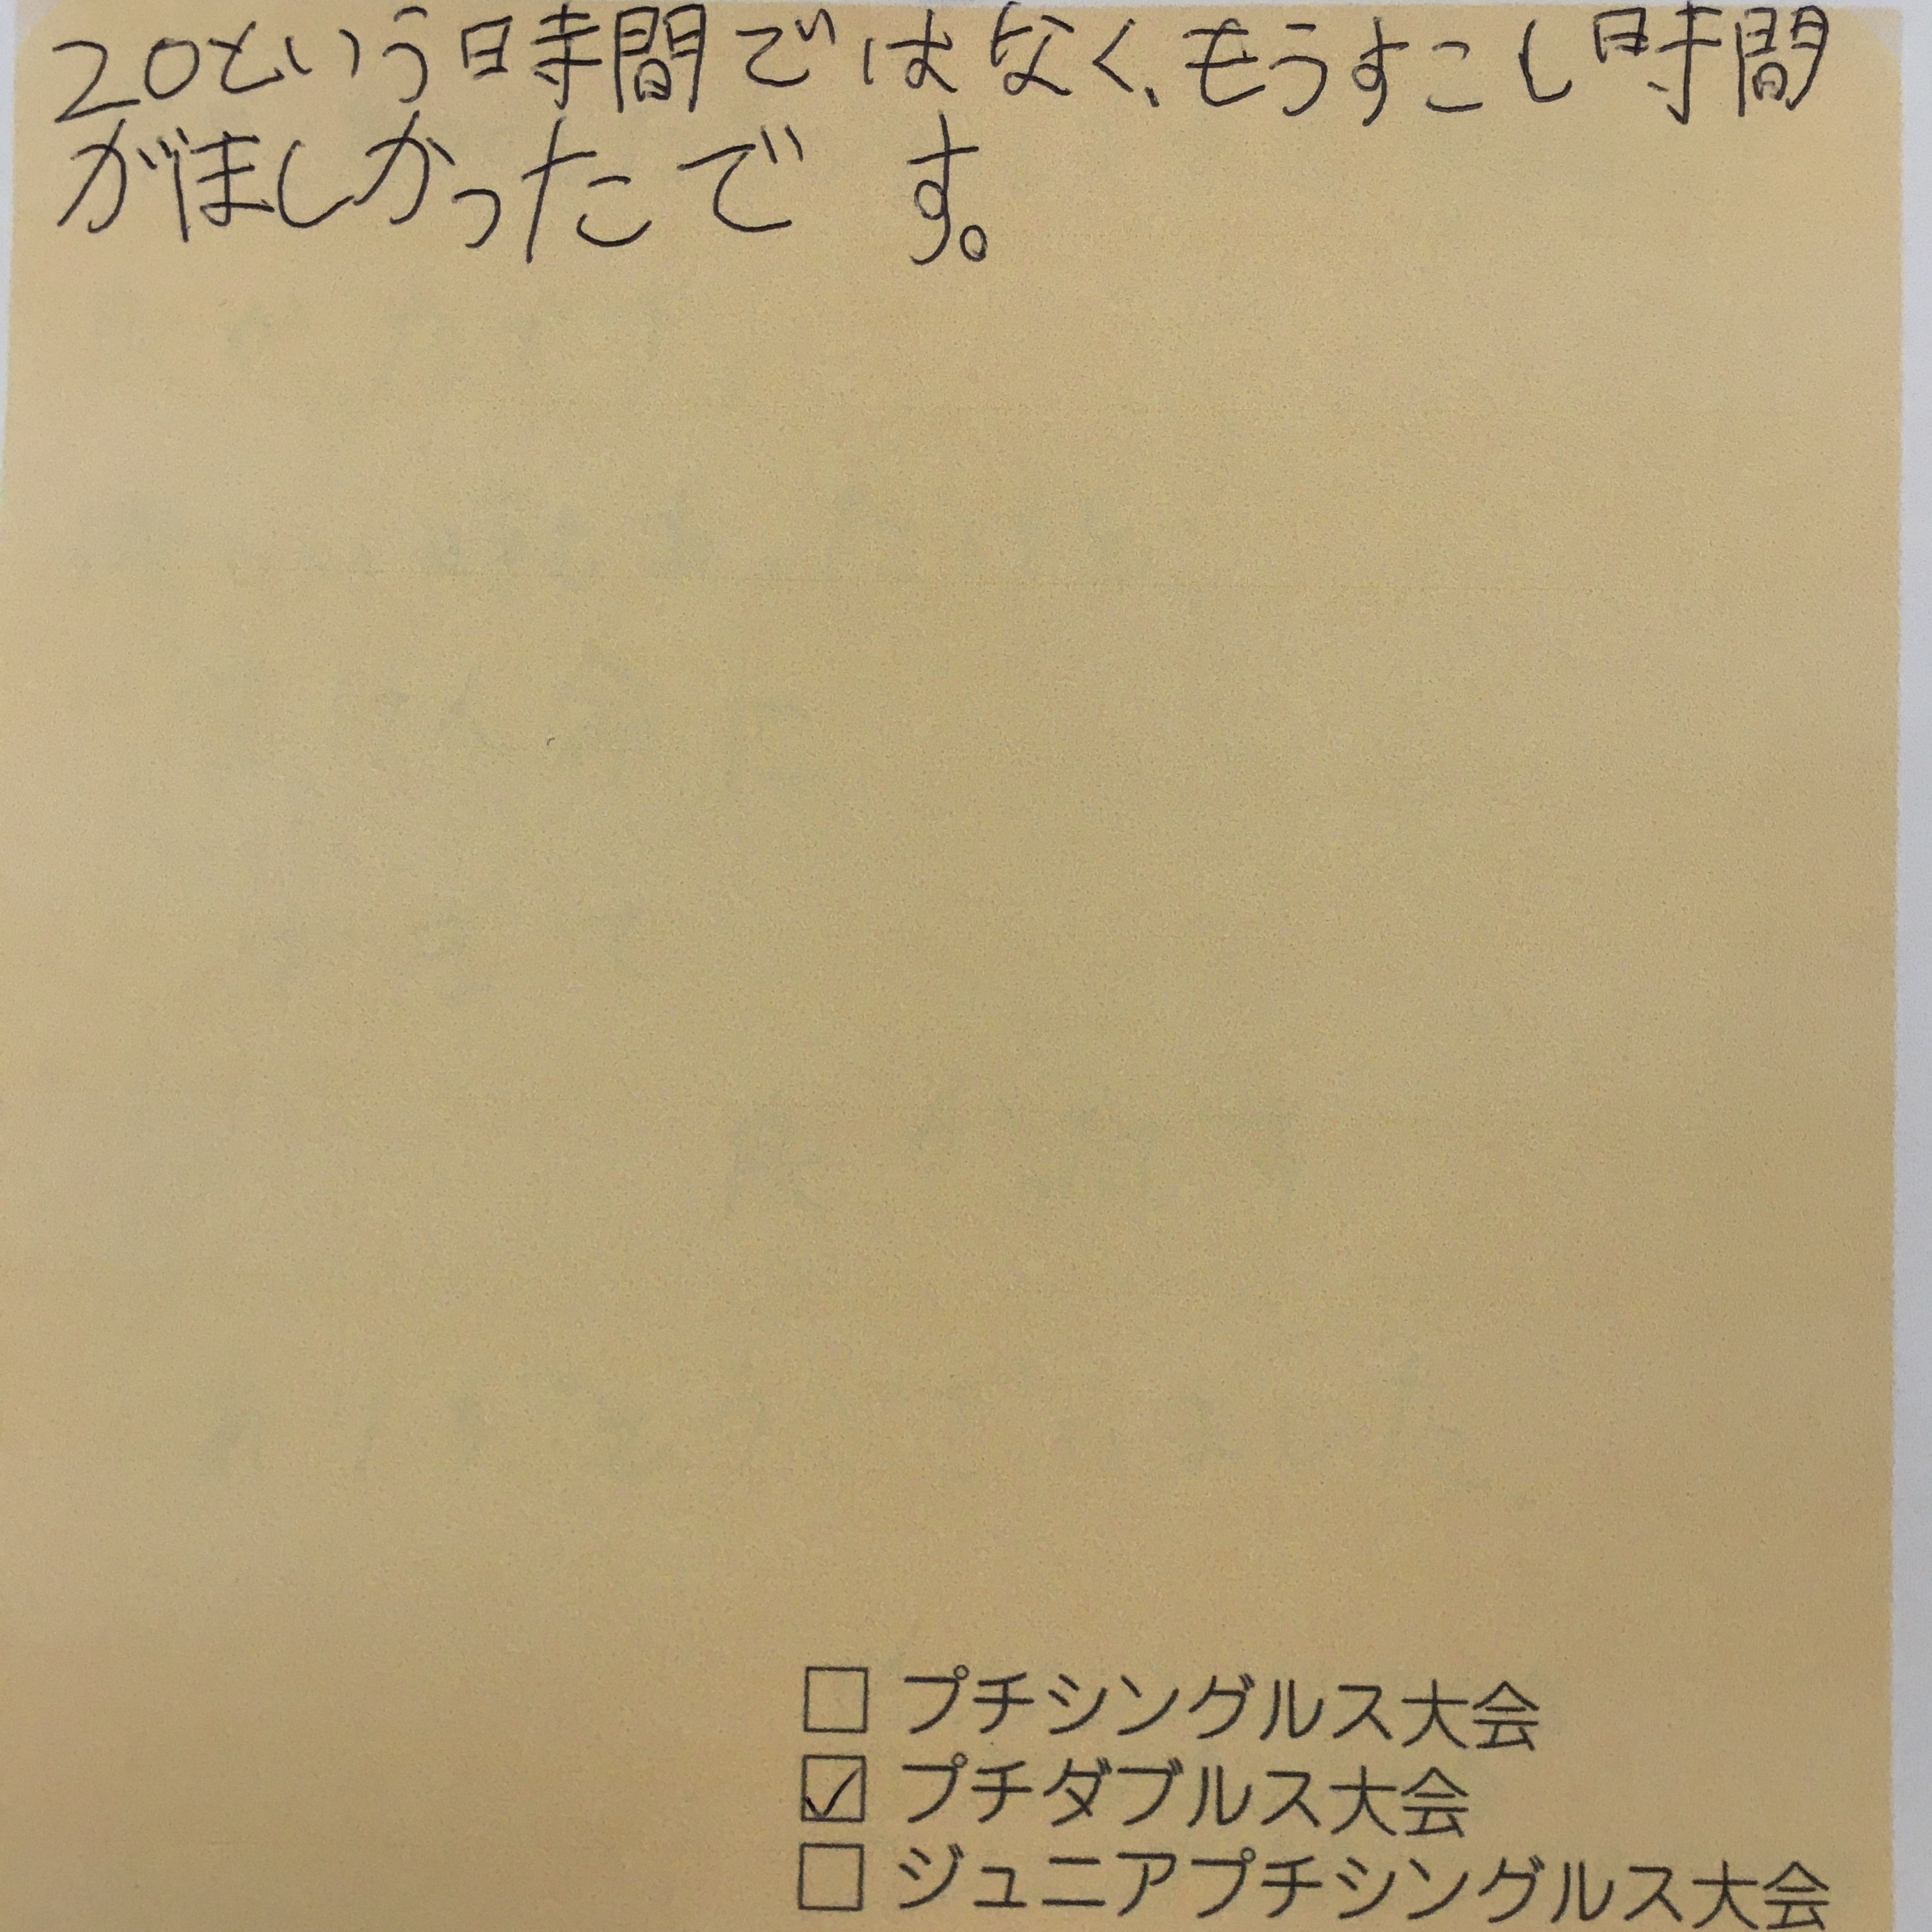 20という時間ではなく、もうすこし時間
がほしかったです。
□ プチシングルス大会
☑ プチダブルス大会
□ ジュニアプチシングルス大会